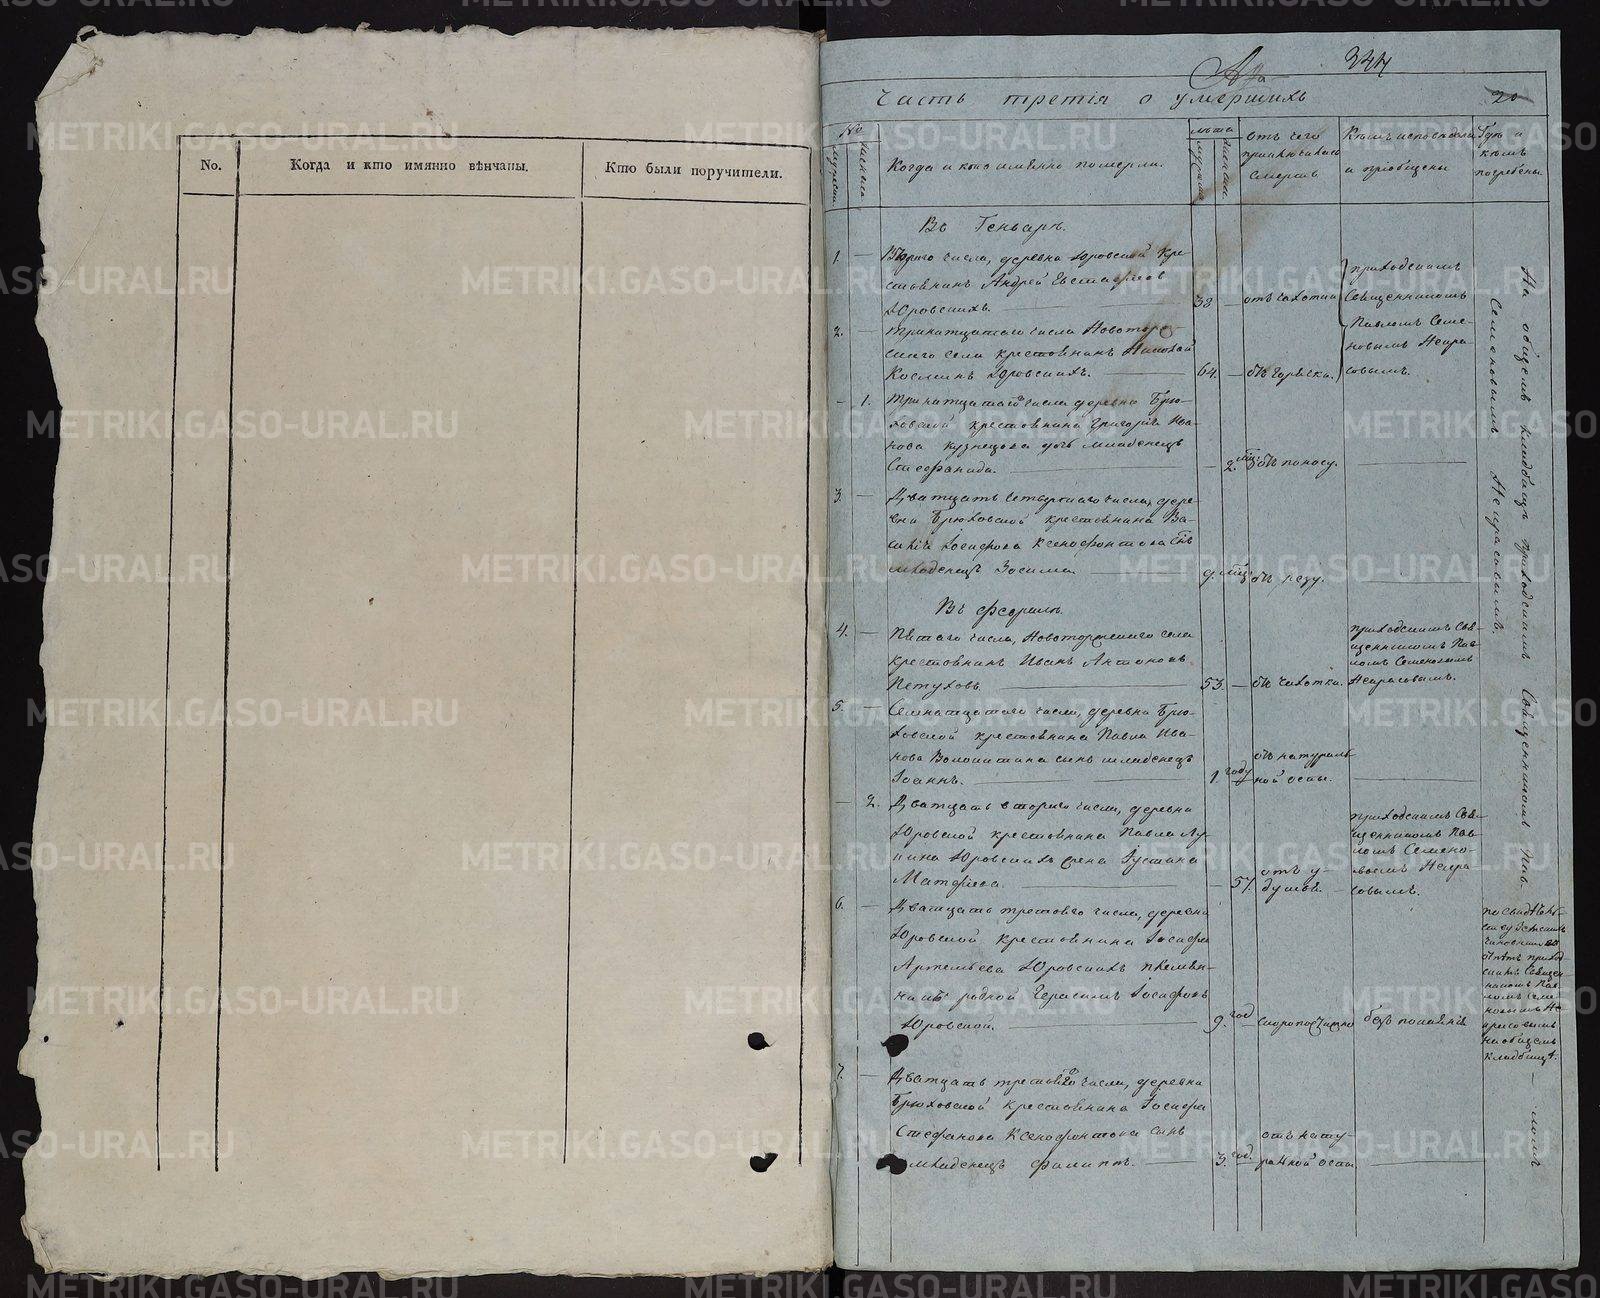 No.
Когда и кто имянно вѣнчаны.
Кто были поручители.
344
20
Часть третія о умершихъ
No
Когда и кто имянно померли.
лѣта
отъ чего
приключилась
смерть
Кѣмъ исповѣданы
и пріобщены
Гдѣ и
кѣмъ
погребены
Въ Генварѣ.
1.
числа, деревни Юровской кре-
стьянинъ Андрей
Юровскихъ.
38
отъ чахотки
приходскимъ
Священникомъ
Павломъ Семе-
новымъ Некра-
совымъ.
2.
Тринатцатаго числа Новоторж-
скаго села крестьянинъ
Козминъ Юровскихъ.
64.
отъ горячки.
1.
Тринатцатаго числа деревни Брю-
ховской крестьянина Григорія Ива-
нова Кузнецова дочь младенецъ
Стефанида.
2.
отъ поносу.
3.
Дватцать четвертаго числа, дере-
вни Брюховской крестьянина Ва-
силія Іосифова Ксенофонтова сынъ
младенецъ Зосима.
9.
отъ резу.
Въ Февралѣ.
4.
Пятаго числа, Новоторжскаго села
крестьянинъ Иванъ Антоновъ
Петуховъ.
53.
отъ чахотки.
приходскимъ Свя-
щенникомъ Пав-
ломъ Семеновымъ
Некрасовымъ.
5.
Семнатцатаго числа, деревни Брю-
ховской крестьянина Павла Ива-
нова сынъ младенецъ
Іоаннъ.
1. году
отъ натураль-
ной оспы.
2.
Дватцать втораго числа, деревни
Юровской крестьянина Павла Лу-
кина Юровскихъ жена Іустина
Матфеева.
57.
отъ у-
душья.
приходскимъ Свя-
щенникомъ Пав-
ломъ Семено-
вымъ Некра-
совымъ.
6.
Дватцать третьяго числа, деревни
Юровской крестьянина Іосифа
Артемьева Юровскихъ племян-
никъ родной Герасимъ Іосифовъ
Юровской.
9. год
скоропостижно
безъ покаянія
приход-
скимъ Священ-
никомъ Пав-
ломъ Семе-
новымъ Не-
красовымъ
на общемъ
кладбищѣ.
7.
Дватцать третьяго числа, деревни
Брюховской крестьянина Іосифа
Стефанова Ксенофонтова сынъ
младенецъ Филиппъ.
3. год.
отъ нату-
ральной оспы
На общемъ кладбищѣ приходскимъ Священникомъ
Семеновымъ Некрасовымъ.
METRIKI.GASO-URAL.RU